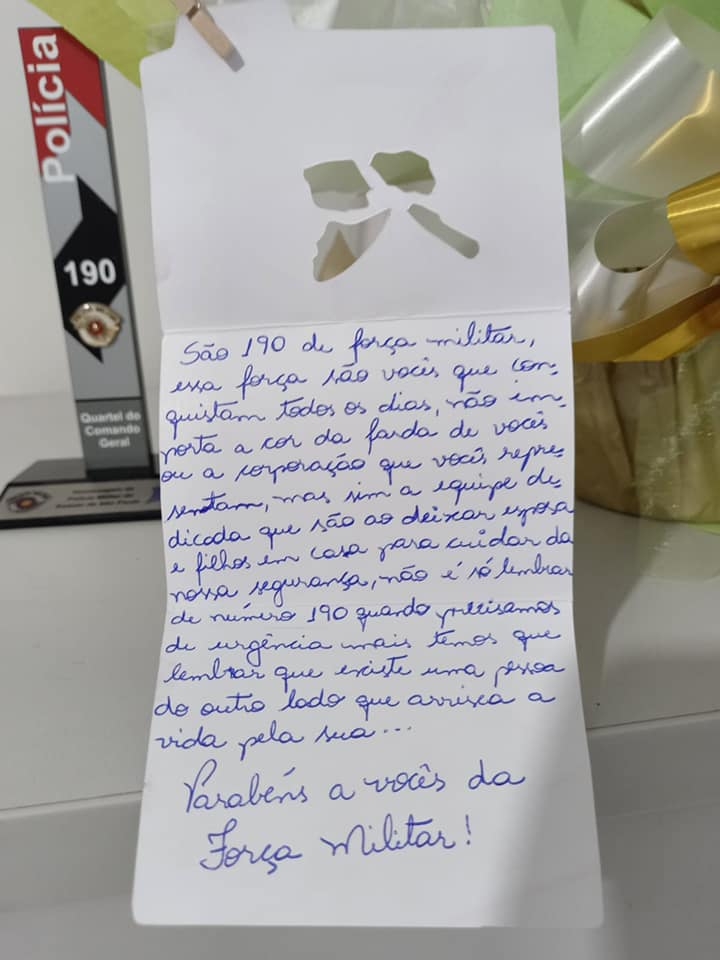 Polícia
190
Quartel do
Comando
Geral
São 190 de força militar,
essa força são vocês que con-
quistam todos os dias, não im-
porta a cor da farda de vocês
ou a corporação que vocês repre-
sentam, mas sim a equipe de-
dicada que são ao deixar esposa
e filhos em casa para cuidar da
nossa segurança, não é só lembrar
de número 190 quando precisamos
de urgência mais temos que
lembrar que existe uma pessoa
do outro lado que arrisca a
vida pela sua...
Parabéns a vocês da
Força Militar!